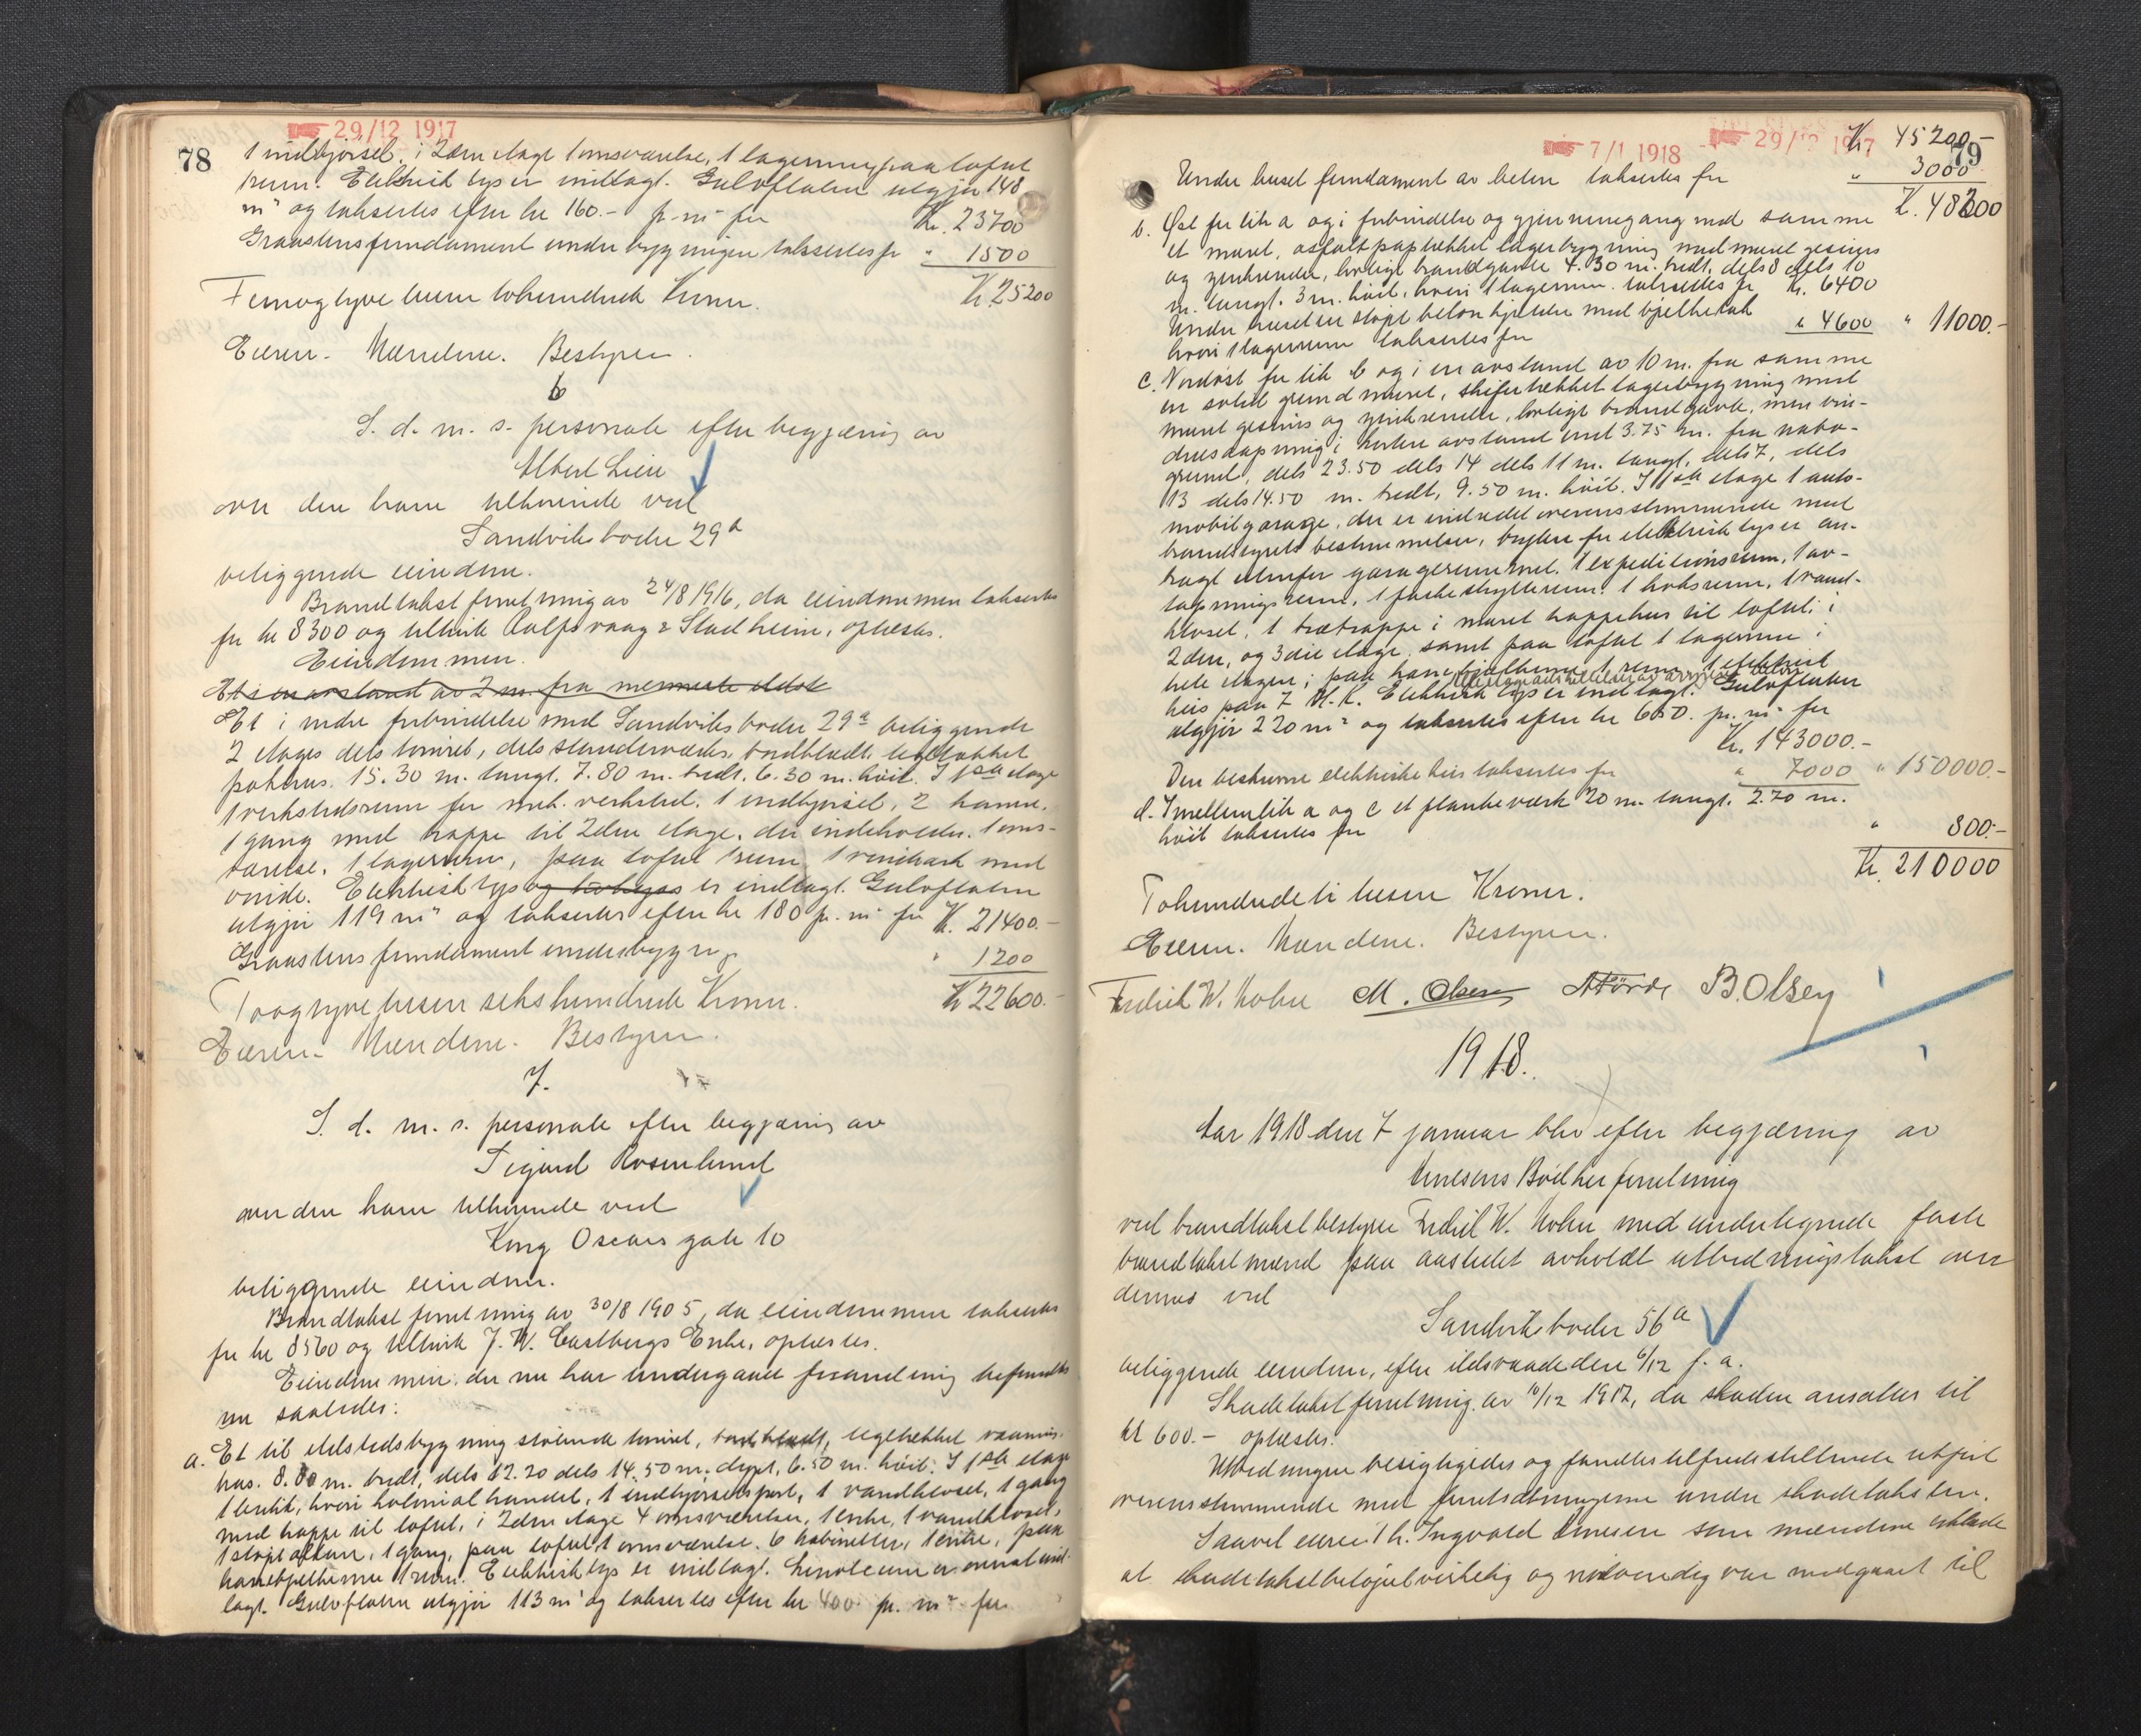 29/12 1917
78
1 indkjørsel, i 2den etage 1 omsværelse, 1 lagerrum, paa loftet
1 rum. Elektrisk lys er indlagt. Gulvflaten utgjør 148
m² og takseres efter kr 160.- pr. m² for Kr. 23700
Graastensfundament under bygningen takseres for " 1500
Femogtyve tusen tohundrede Kroner. Kr. 25200
Eieren. Mændene. Bestyrer.
6
S. d. m. s. personale efter begjæring av
Albert Lien
over den ham tilhørende ved
Sandviksboder 29b
beliggende eiendom.
Brandtakstforretning av 24/8 1916, da eiendommen takseres
for kr 8300 og tilhørte Rolfsvaag & Stadheim, oplæstes.
Eiendommen.
Et i en avstand av 2 m. fra nærmeste ildsted
Et i indre forbindelse med Sandviksboder 29a beliggende
2 etages dels tømret, dels standerværks, bordklædt, teglætækket
pakhus. 15.30 m. langt, 7.80 m. bredt, 6.30 m. høit. I 1ste etage
1 verkstedsrum for mek. verksted, 1 indkjørsel, 2 kamre,
1 gang med trappe til 2den etage, der indeholder. 1 oms-
værelse, 1 lagerrum, paa loftet 1 rum, 1 vindark med
vinde. Elektrisk lys og kokegas er indlagt. Gulvflaten
utgjør 119 m² og takseres efter kr 180 pr. m² for Kr. 21400.-
Graastens fundament under bygn. " 1200
Toogtyve tusen sekshundrede Kroner. Kr 22600.-
Eieren. Mændene. Bestyrer.
7.
S. d. m. s. personale efter begjæring av
Sigurd Rosenlund
over den ham tilhørende ved
Kong Oscars gate 10
beliggende eiendom.
Brandtakst forretning av 30/8 1905, da eiendommen takseres
for kr 8560 og tilhørte J. W. Eastbergs Enke, oplæstes.
Eiendommen, der nu har undergaaet forandring befandtes
nu saaledes:
a. Et til ildstedsbygning støtende tømret, bordklædt, teglætækket vaanings-
hus. 8.80 m. bredt, dels 12.20 dels 14.50 m. dypt, 6.50 m. høit. I 1ste etage
1 butik, hvori kolonialhandel, 1 indkjørselsport, 1 vandkloset, 1 gang
med trappe til loftet, i 2den etage 4 omsværelser, 1 entre, 1 vandkloset,
1 støpt altan, 1 gang, paa loftet 1 omsværelse, 6 kabinetter, 1 entre, paa
hanebjelkerne 1 rum. Elektrisk lys er indlagt. Linoleum er overalt ind-
lagt. Gulvflaten utgjør 113 m² og takseres efter kr 400 pr. m² for
7/1 1918 29/12 1917
79
Kr. 45200.-
Under huset fundament av beton takseres for " 3000
Kr. 48200
b. Øst for lit a og i forbindelse og gjennemgang med samme
et muret, asfaltpaptækket lagerbygning med muret gesims
og zinkrender, lovlige brandgavle 4.30 m. bredt, dels 8 dels 10
m. langt, 3 m. høit, hvori 1 lagerrum takseres for Kr. 6400
Under huset er støpt beton kjelder med bjelketak
hvori 1 lagerrum takseres for " 4600 " 11000.-
c. Nordøst for lit b og i en avstand av 10 m. fra samme
en solid grundmuret, skifertækket lagerbygning med
muret gesims og zinkrender, lovlige brandgavle, men vin-
duesaapning i kortere avstand end 3.75 m. fra nabo-
grund, dels 23.50 dels 14 dels 11 m. langt, dels 7, dels
13 dels 14.50 m. bredt, 9.50 m. høit. I 1ste etage 1 auto-
mobilgarage, der er indredet overensstemmende med
brandstyrets bestemmelser, bryter for elektrisk lys er an-
bragt utenfor garagerummet. 1 expeditionsrum, 1 av-
tapningsrum, 1 flaskeskyllerum, 1 koksrum, 1 vand-
kloset, 1 trætrappe i muret trappehus til loftet; i
2den, og 3die etage, samt paa loftet 1 lagerrum i
hele etagen; paa hanebjelkerne 1 rum, 1 elektrisk
heis paa 7 H.K. Elektrisk lys er indlagt. Gulvflaten
utgjør 220 m² og takseres efter kr 650. pr. m² for
Kr. 143000.-
Den beskrevne elektriske heis takseres for " 7000 " 150000.-
d. Imellem lit a og c et plankeværk 20 m. langt, 2.70 m.
høit takseres for " 800.-
Kr. 210000
Tohundredeti tusen Kroner.
Eieren. Mændene. Bestyrer.
Fredrik W. Kohn M. Olsen A Førde B. Olsen
1918.
Aar 1918 den 7 januar blev efter begjæring av
Arnesens Bødkerforretning
ved brandtakstbestyrer Fredrik W. Kohn med undertegnede faste
brandtakstmænd paa aastedet avholdt utbedringstakst over
dennes ved
Sandviksboder 56a
beliggende eiendom, efter ildsvaade den 6/12 f. a.
Skadetakstforretning av 10/12 1917, da skaden ansattes til
kr 600.- oplæstes.
Utbedringen besigtigedes og fandtes tilfredsstillende utført
overensstemmende med forutsætningerne under skadetaksten.
Saavel eieren v. hr. Ingvald Arnesen som mændene erklærte
at skadetakstbeløpet virkelig og nødvendig var medgaaet til